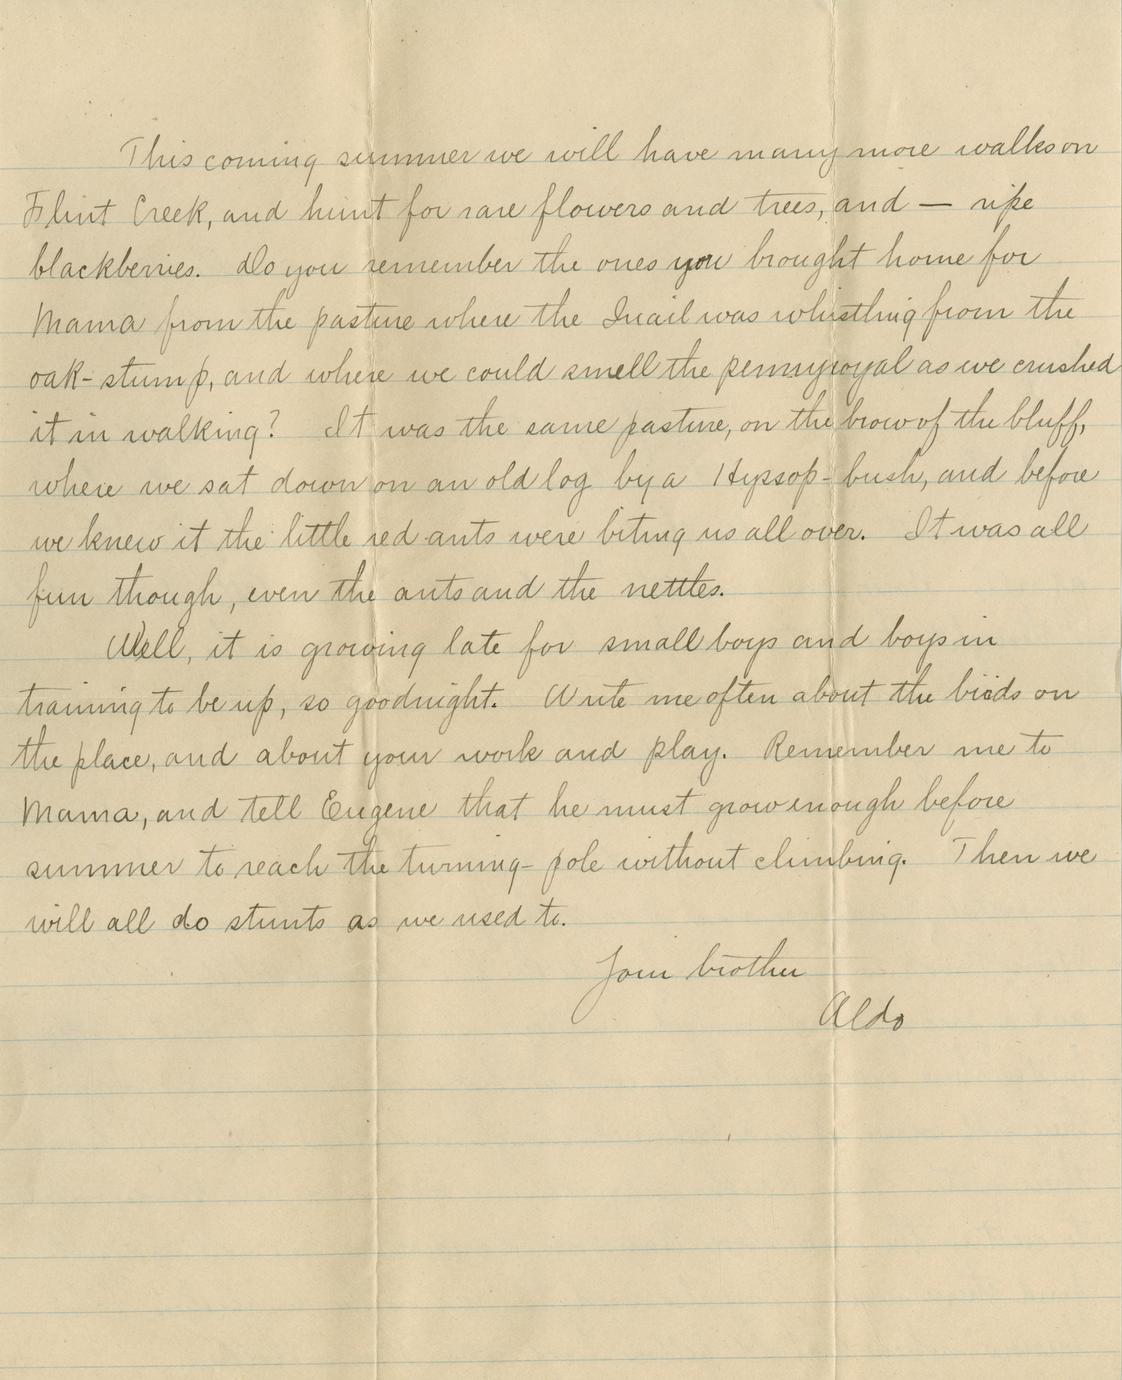 This coming summer we will have many more walks on
Flint Creek, and hunt for rare flowers and trees, and — ripe
blackberries. Do you remember the ones you brought home for
Mama from the pasture where the Quail was whistling from the
oak-stump, and where we could smell the pennyroyal as we crushed
it in walking? It was the same pasture, on the brow of the bluff,
where we sat down on an old log by a Hyssop-bush, and before
we knew it the little red ants were biting us all over. It was all
fun though, even the ants and the nettles.
Well, it is growing late for small boys and boys in
training to be up, so goodnight. Write me often about the birds on
the place, and about your work and play. Remember me to
Mama, and tell Eugene that he must grow enough before
summer to reach the turning-pole without climbing. Then we
will all do stunts as we used to.
Your brother
Aldo